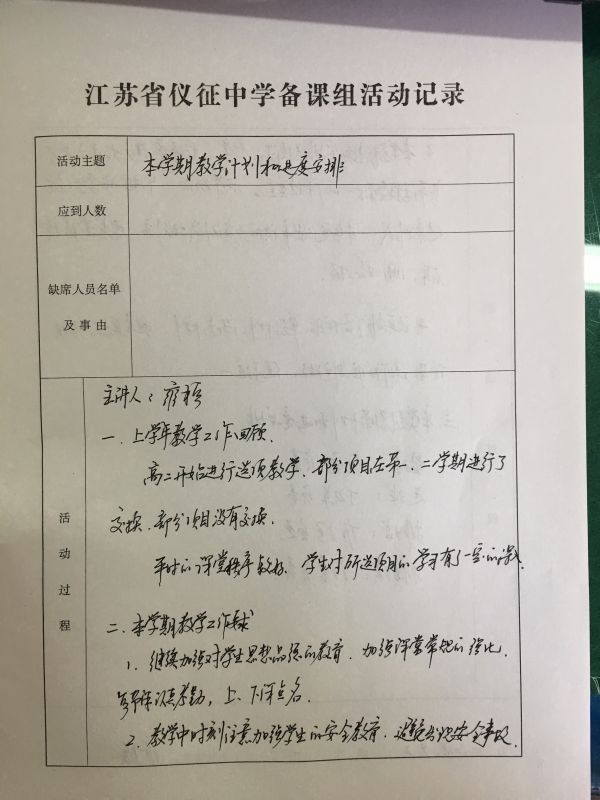 江苏省仪征中学备课组活动记录
活动主题 本学期教学计划和进度安排
应到人数
缺席人员名单
及事由
活动过程
主讲人:
一、上学年教学工作回顾
高二开始进行选项教学、部分项目在第一、二学期进行了
交换、部分项目没有交换.
平时的课堂秩序较好、学生对所选项目的学习有了一定的
二、本学期教学工作
1、继续加强对学生思想品德的教育、加强课堂常规的强化、
认真考勤,上、下课点名.
2、教学中时刻注意加强学生的安全教育、避免出现安全事故.